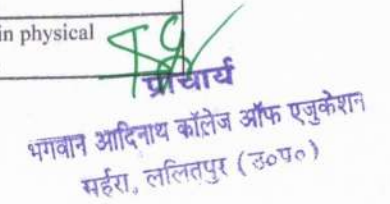 in physical
प्राचार्य
भगवान आदिनाथ कॉलेज ऑफ एजुकेशन
मर्हरा, ललितपुर (उ०प०)